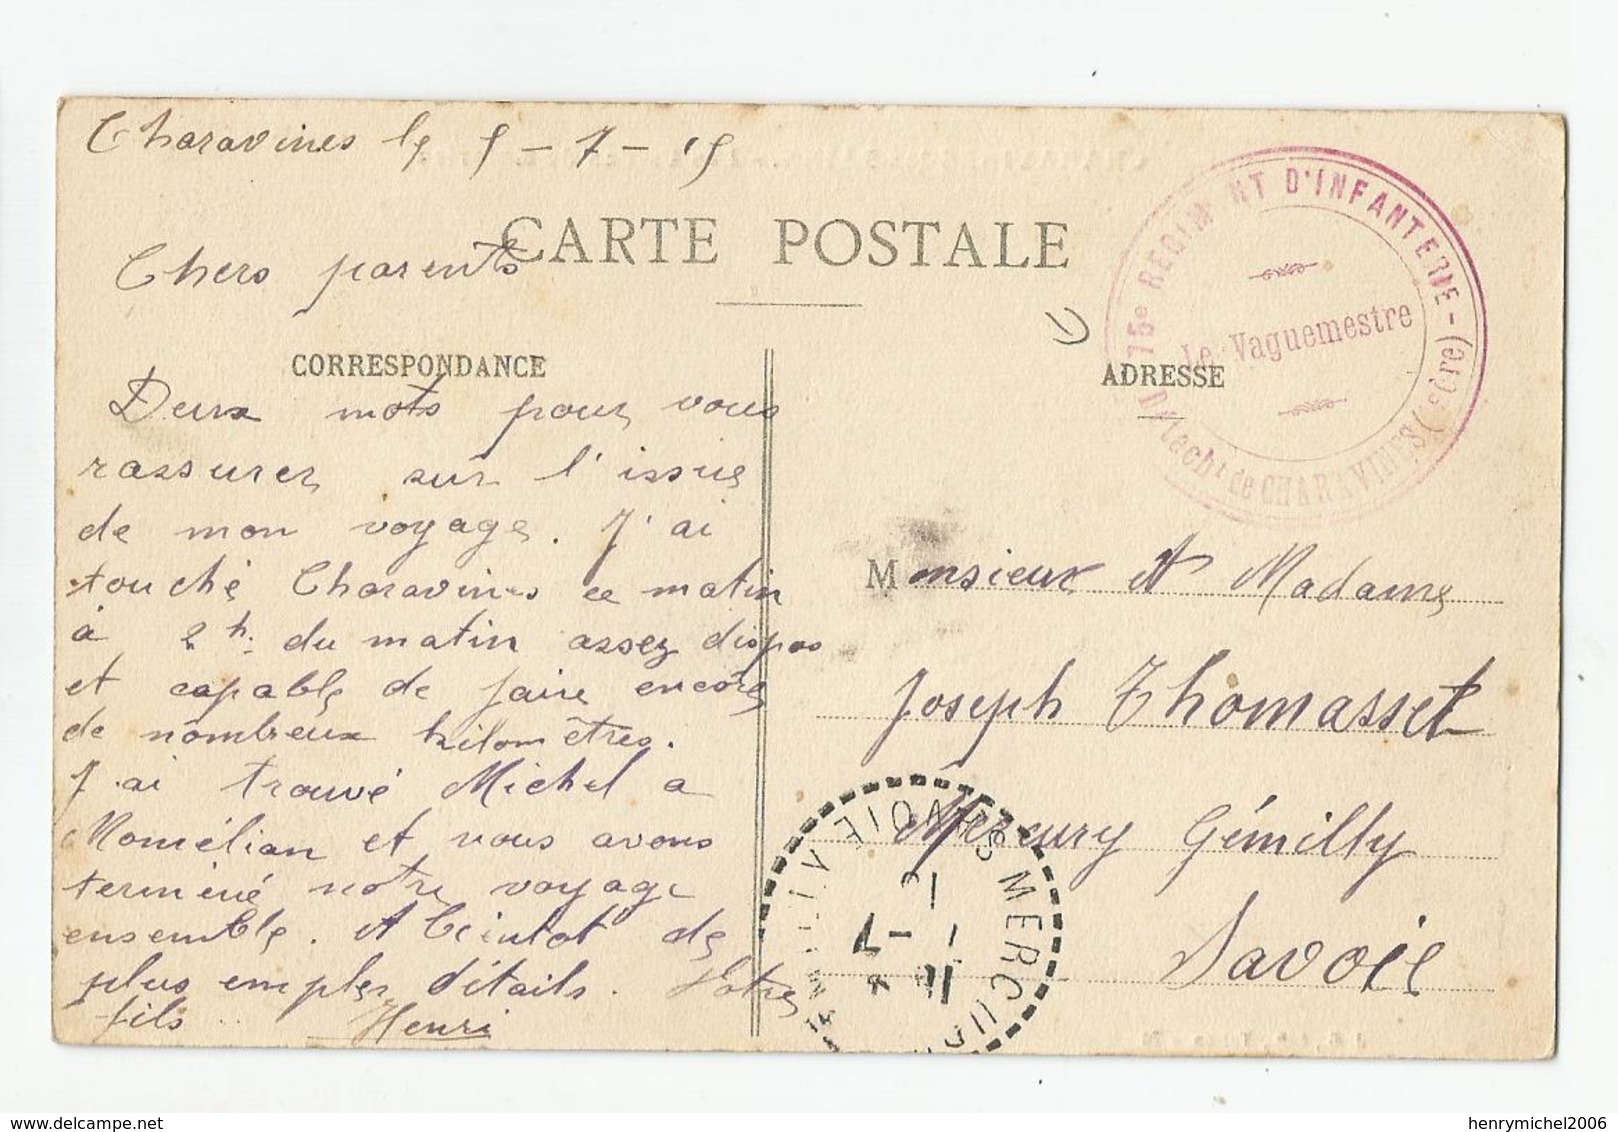 Charavines le 5-7-15
CARTE POSTALE
Chers parents
CORRESPONDANCE
Deux mots pour vous
rassurer sur l'issue
de mon voyage. J'ai
touché Charavines ce matin
à 2h. du matin assez dispos
et capable de faire encore
de nombreux kilomètres.
J'ai trouvé Michel a
Momélian et nous avons
terminé notre voyage
ensemble. A bientot de
plus emples détails. Votre
fils Henri
75e REGIMENT D'INFANTERIE - (Isère)
Le Vaguemestre
de CHARAVINES
ADRESSE
Monsieur et Madame
Joseph Thomasset
Mercury Gémilly
Savoie
MERCURY
SAVOIE
henrymichel2006